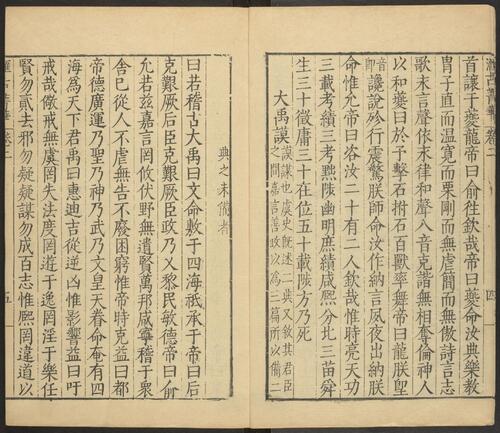 卷二 四
首讓于夔龍帝曰俞徃欽哉帝曰夔命汝典樂教
胄子直而温寛而栗剛而無虐簡而無傲詩言志
歌永言聲依永律和聲八音克諧無相奪倫神人
以和夔曰於予擊石拊石百獸率舞帝曰龍朕堲
音即讒說殄行震驚朕師命汝作納言夙夜出納朕
命惟允帝曰咨汝二十有二人欽哉惟時亮天功
三載考績三考黜陟幽明庶績咸熙分北三苗舜
生三十徵庸三十在位五十載陟方乃死
大禹謨 謨謀也虞史旣述二典又敘其君臣
之間嘉言善政以為三篇所以備二
典之未備者
曰若稽古大禹曰文命敷于四海祗承于帝曰后
克艱厥后臣克艱厥臣政乃乂黎民敏德帝曰俞
允若兹嘉言罔攸伏野無遺賢萬邦咸寧稽于衆
舍已從人不虐無告不廢困窮惟帝時克益曰都
帝德廣運乃聖乃神乃武乃文皇天眷命奄有四
海為天下君禹曰惠迪吉從逆凶惟影響益曰吁
戒哉儆戒無虞罔失法度罔遊于逸罔淫于樂任
賢勿貳去邪勿疑疑謀勿成百志惟熙罔違道以
卷二 五